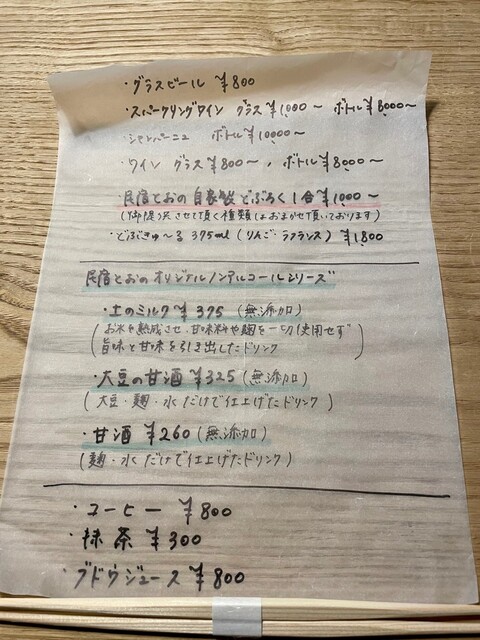 ・グラスビール ¥800
・スパークリングワイン グラス ¥1,000〜 ボトル ¥8,000〜
・シャンパーニュ ボトル ¥10,000〜
・ワイン グラス ¥800〜, ボトル ¥8,000〜
・民宿とおの 自家製 どぶろく 1合 ¥1,000〜
(御提供させて頂く種類はおまかせ頂いております)
・どぶきゅーる 375ml (りんご・ラフランス) ¥1,800
民宿とおの オリジナルノンアルコールシリーズ
・土のミルク ¥375 (無添加)
(お米や熟成させ、甘味料や麹を一切使用せず
旨味と甘味を引き出したドリンク
・大豆の甘酒 ¥325 (無添加)
(大豆・麹・水だけで仕上げたドリンク)
・甘酒 ¥260 (無添加)
(麹・水だけで仕上げたドリンク)
・コーヒー ¥800
・抹茶 ¥300
・ブドウジュース ¥800